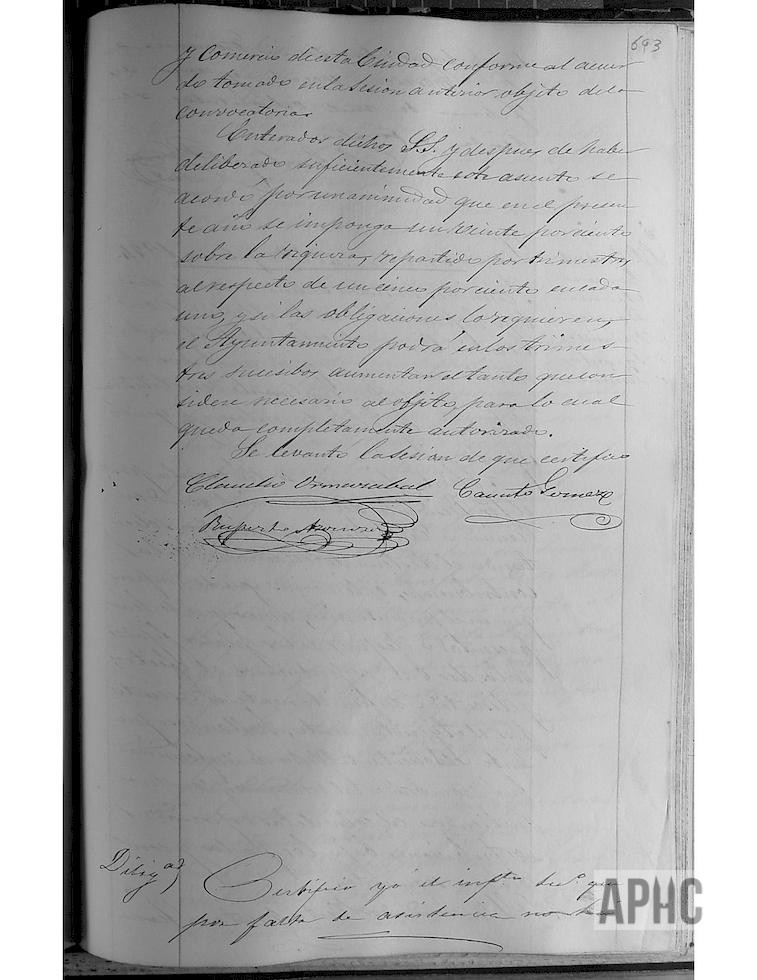 693
y Comercio de esta Ciudad conforme al acuer
do tomado en la sesion anterior objeto de la
convocatoria.
Enterados dichos S.S. y despues de haber
deliberado suficientemente este asunto se
acordó por unanimidad que en el presen
te año se imponga un veinte por ciento
sobre la riqueza, repartido por trimestres,
al respecto de un cinco por ciento en cada
uno, y si las obligaciones lo requieren,
el Ayuntamiento podrá en los trimes
tres sucesibos aumentar el tanto que con
sidere necesario al objeto, para lo cual
queda completamente autorizado.
Se levantó la sesion de que certifico
Claudio Ormazabal Canuto Gomez
Ruperto
Dilig.ª
Certifico yo el infto. Sec.º que
por falta de asistencia no
APHC